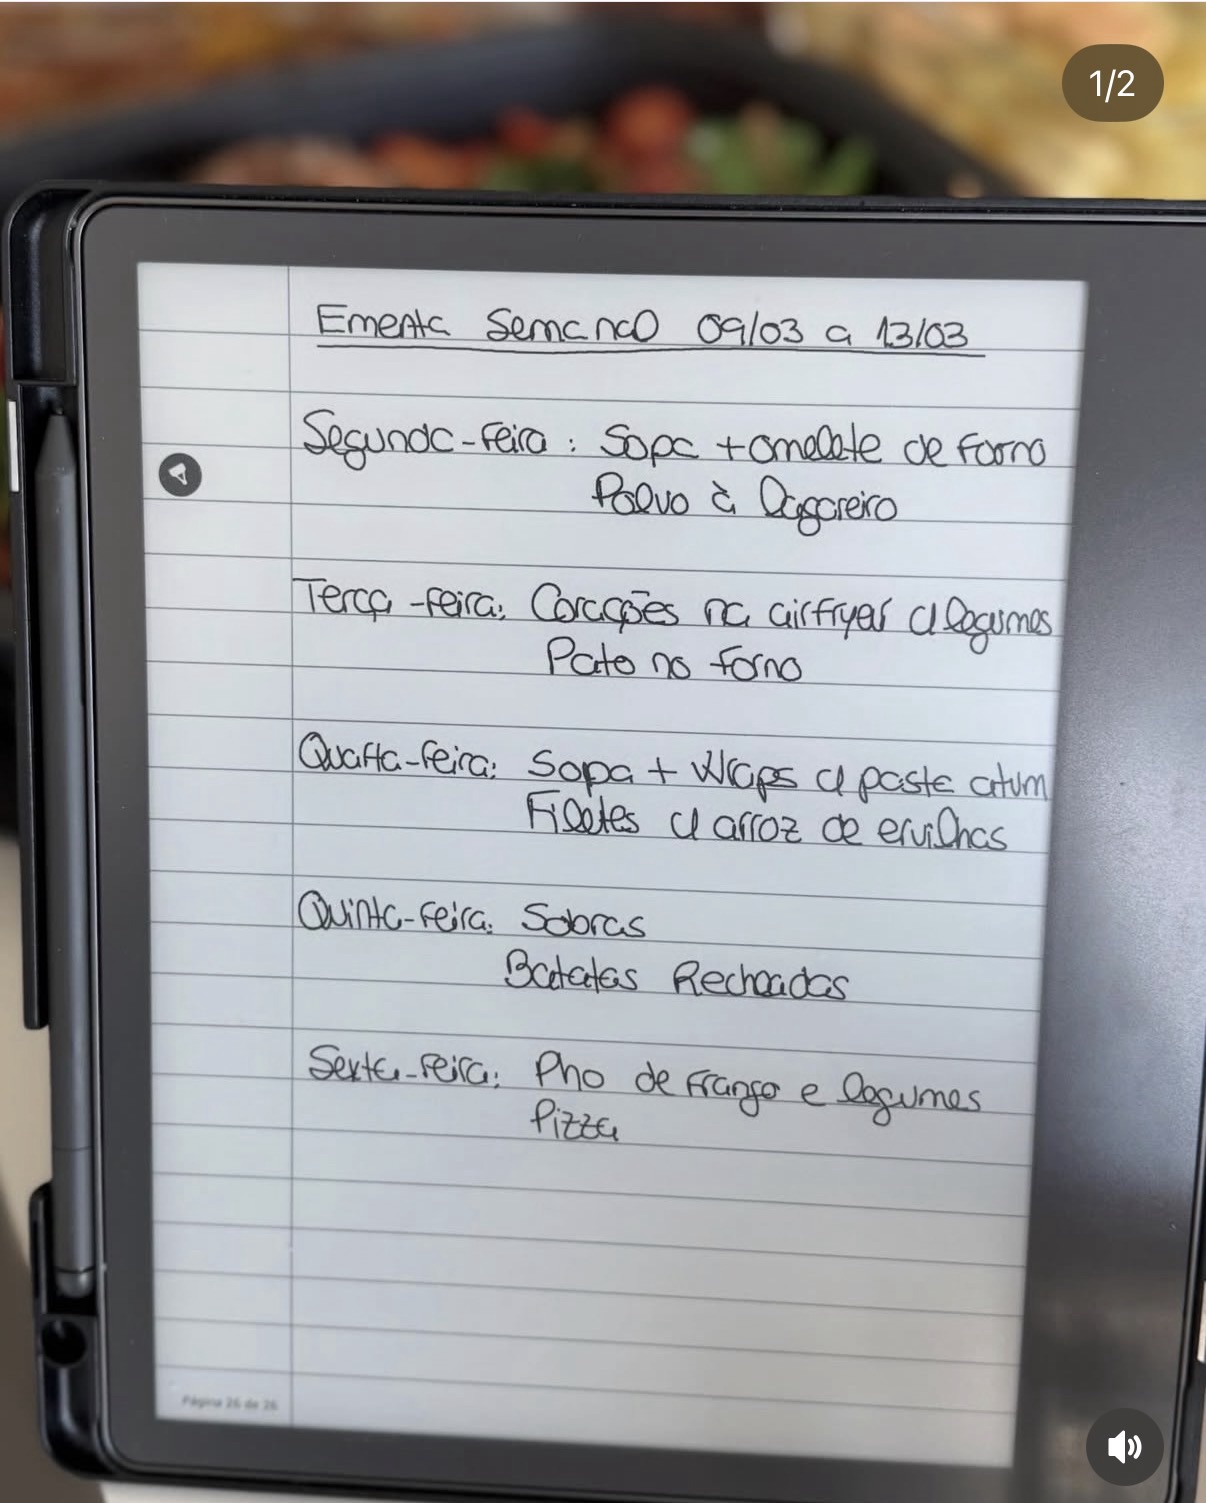 1/2
Ementa Semanal 09/03 a 13/03
Segunda-feira: Sopa + omelete de forno
Polvo à lagareiro
Terça-feira: Corações na airfryer c/ legumes
Pato no forno
Quarta-feira: Sopa + Wraps c/ pasta atum
Filetes c/ arroz de ervilhas
Quinta-feira: Sobras
Batatas Recheadas
Sexta-feira: Pho de frango e legumes
Pizza
Página 26 de 26